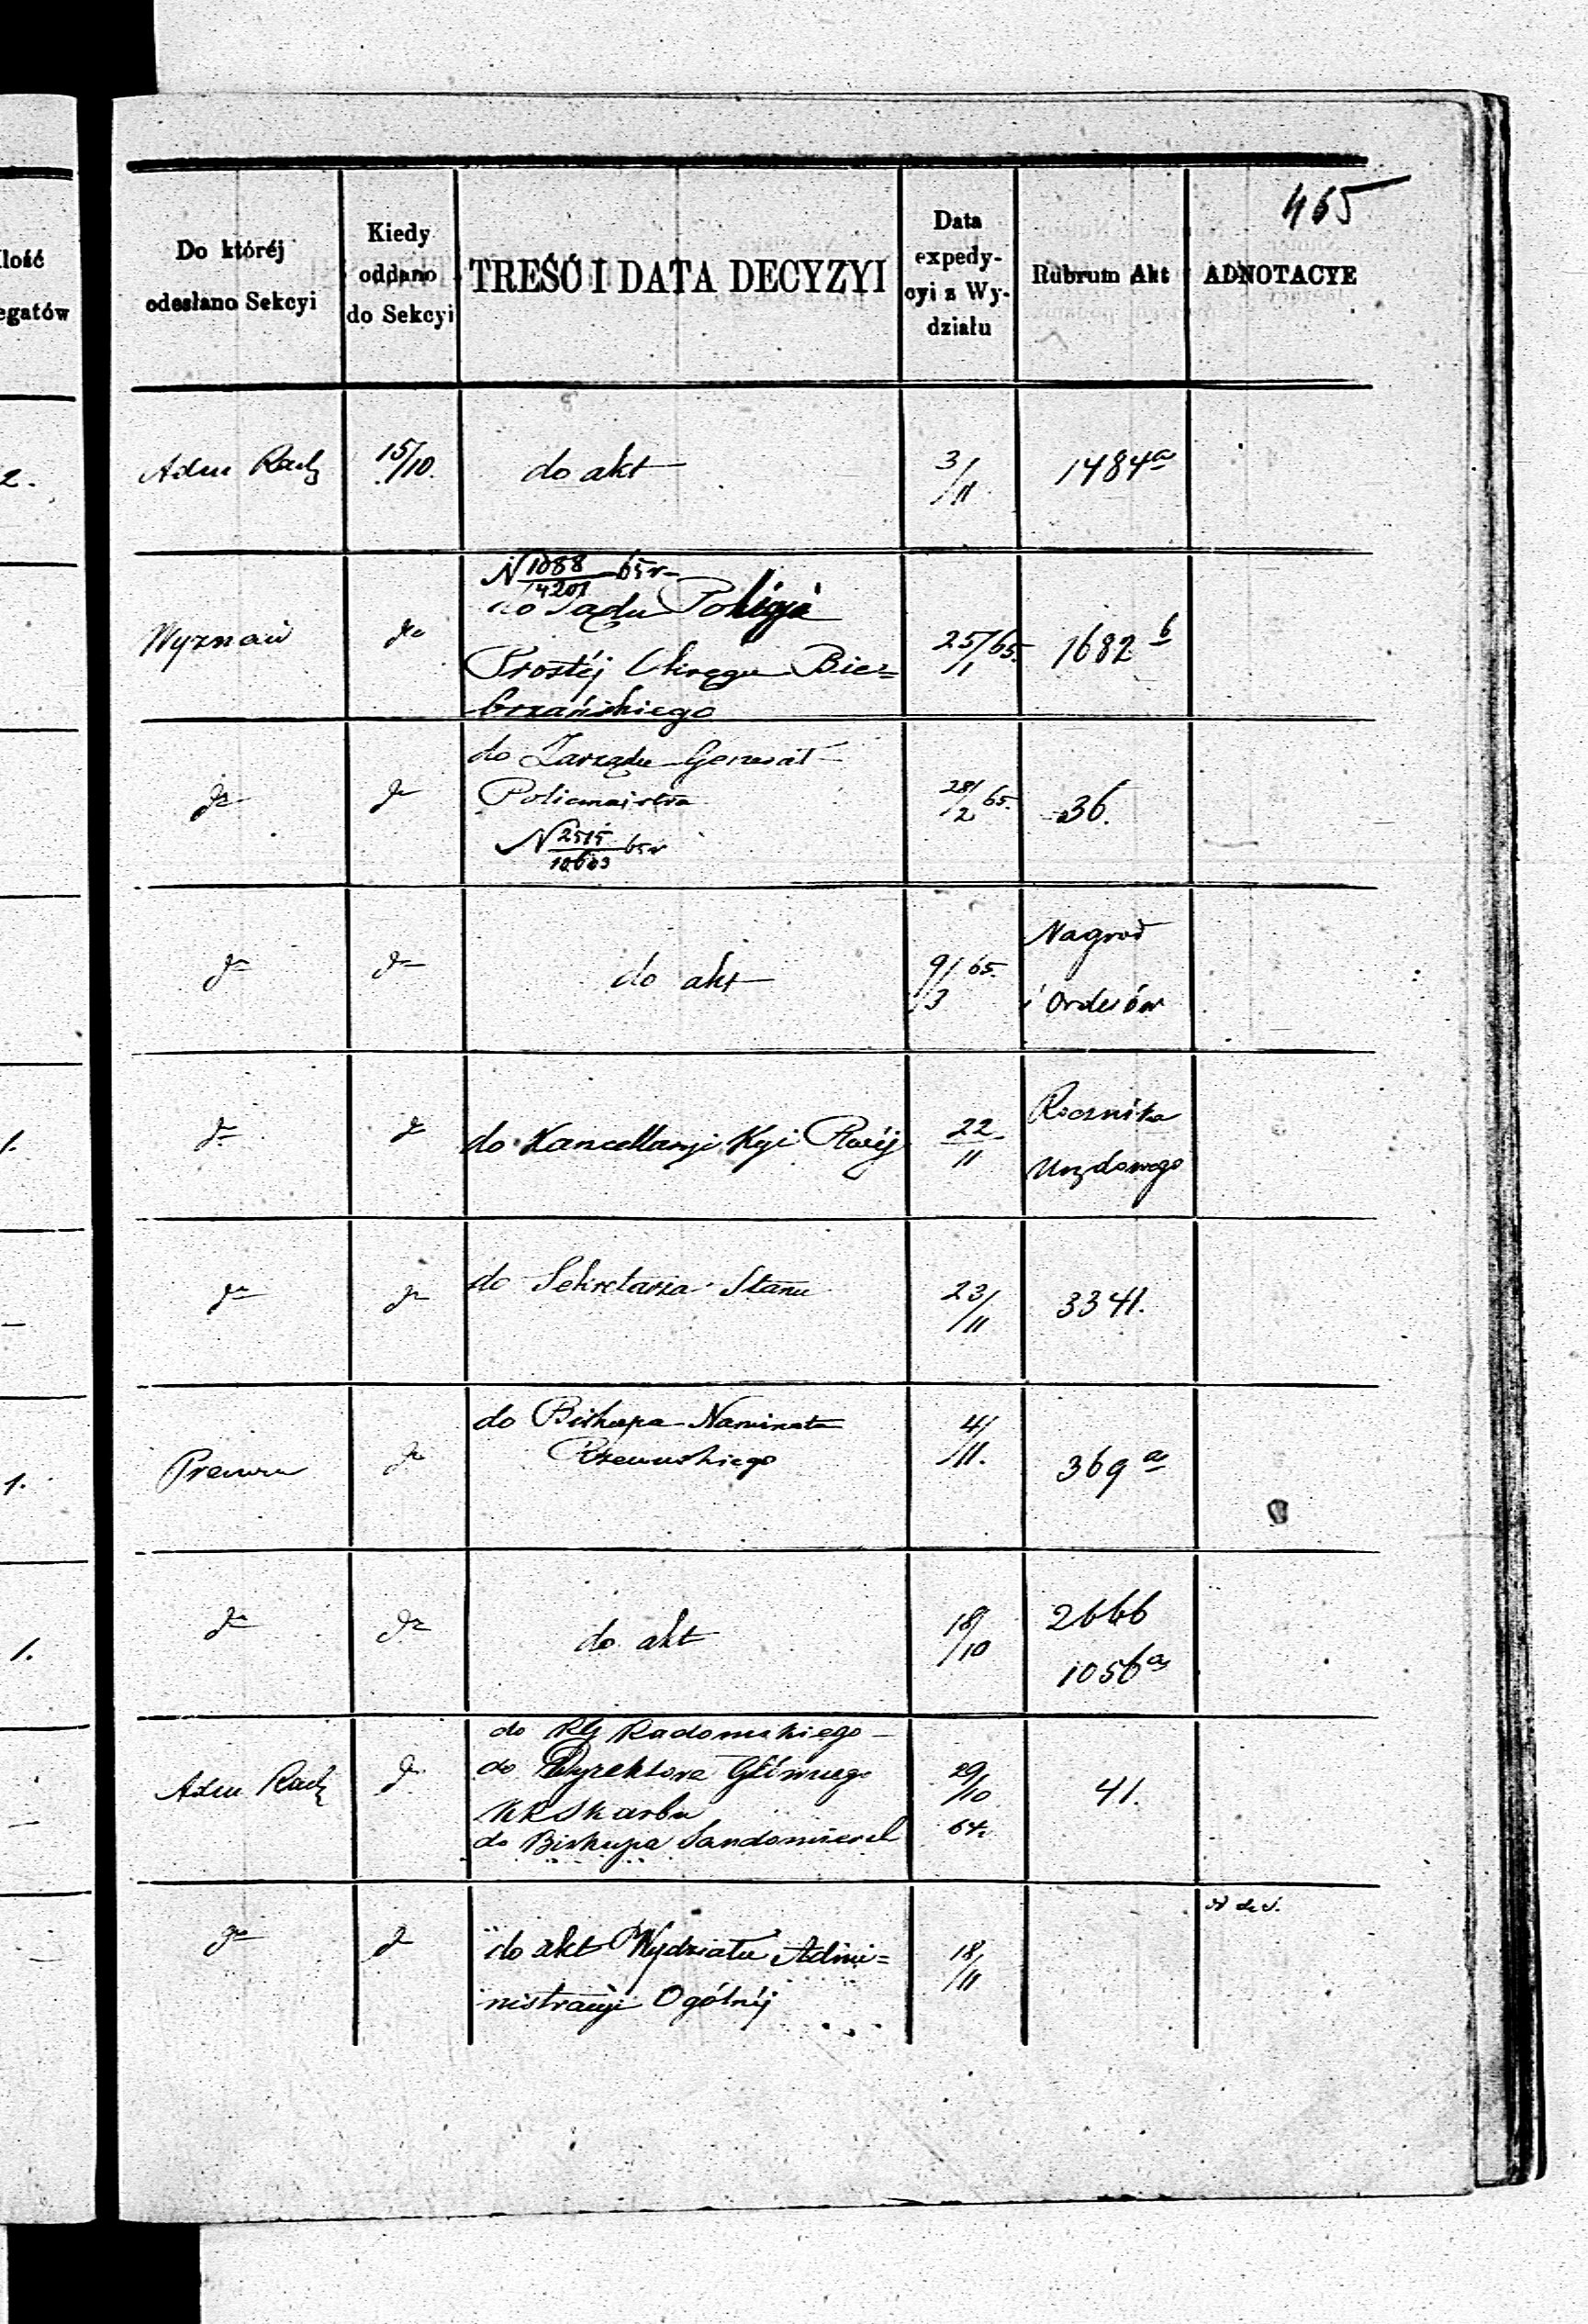 465
Ilość
egatów
Do któréj
odesłano Sekcyi
Kiedy
oddano
do Sekcyi
TREŚĆ I DATA DECYZYI
Data
expedy-
cyi z Wy-
działu
Rubrum Akt
ADNOTACYE
2. Adm Rady 15/10. do akt 3/11 1484a
N 1088/14201 65 r
do Sądu Policyi
Wyznań do Prostéj Okręgu Bie= 25/1 65. 1682 b
brzańskiego
do Zarządu Generał
do do Policmajstra 28/2 65. 36.
N 2515/10603 65 r
Nagrod
do do do akt 9/3 65. i Orderów
Rocznika
1. do do do Kancellaryi Kyi Rząj 22/11 Urzędowego
do do do Sekretarza Stanu 23/11 3341.
do Biskupa Nominata 4/11.
1. Prawna do Rzewuskiego 369 a
1. do do do akt 18/10 2666
1056a
do RG Radomskiego
Adm Rady do do Dyrektora Głównego 29/10 41.
KRSkarbu 64.
do Biskupa Sandomiersk
do do do akt Wydziału Admi= 18/11
nistracyi Ogólnéj